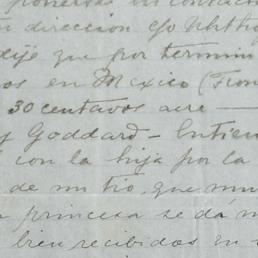 ponerse en contacto
direccion c/o
dije que por termin
os en Mexico (Fron
30 centavos aereo —
y Goddard - Entien
con la hija por la
de mi tio, que mu
princesa se dá m
bien recibidos en